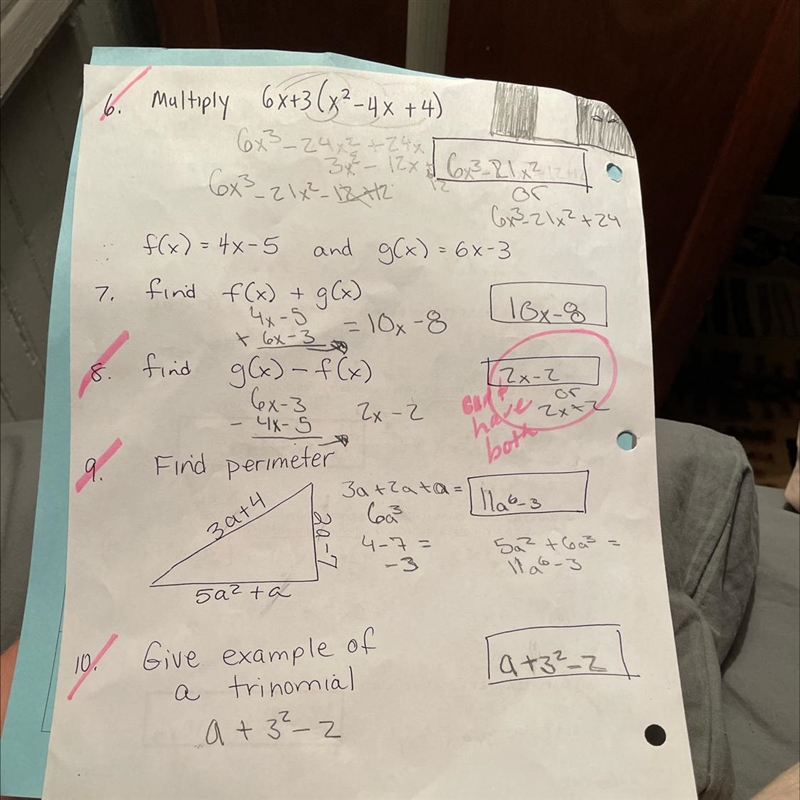 6. Multiply 6x+3(x²-4x+4)
6x³-24x²+24x
3x²-12x+12
6x³-21x²-12+12
6x³-21x²
or
6x³-21x²+24
f(x)=4x-5 and g(x)=6x-3
7. find f(x)+g(x)
4x-5
+ 6x-3 = 10x-8
10x-8
8. find g(x)-f(x)
6x-3
- 4x-5
2x-2
2x-2
or
2x+2
can't
have
both
9. Find perimeter
3a+4
2a-7
5a²+a
3a+2a+a=
6a³
4-7=
-3
11a⁶-3
5a²+6a³=
11a⁶-3
10. Give example of
a trinomial
a+3²-2
a+3²-2